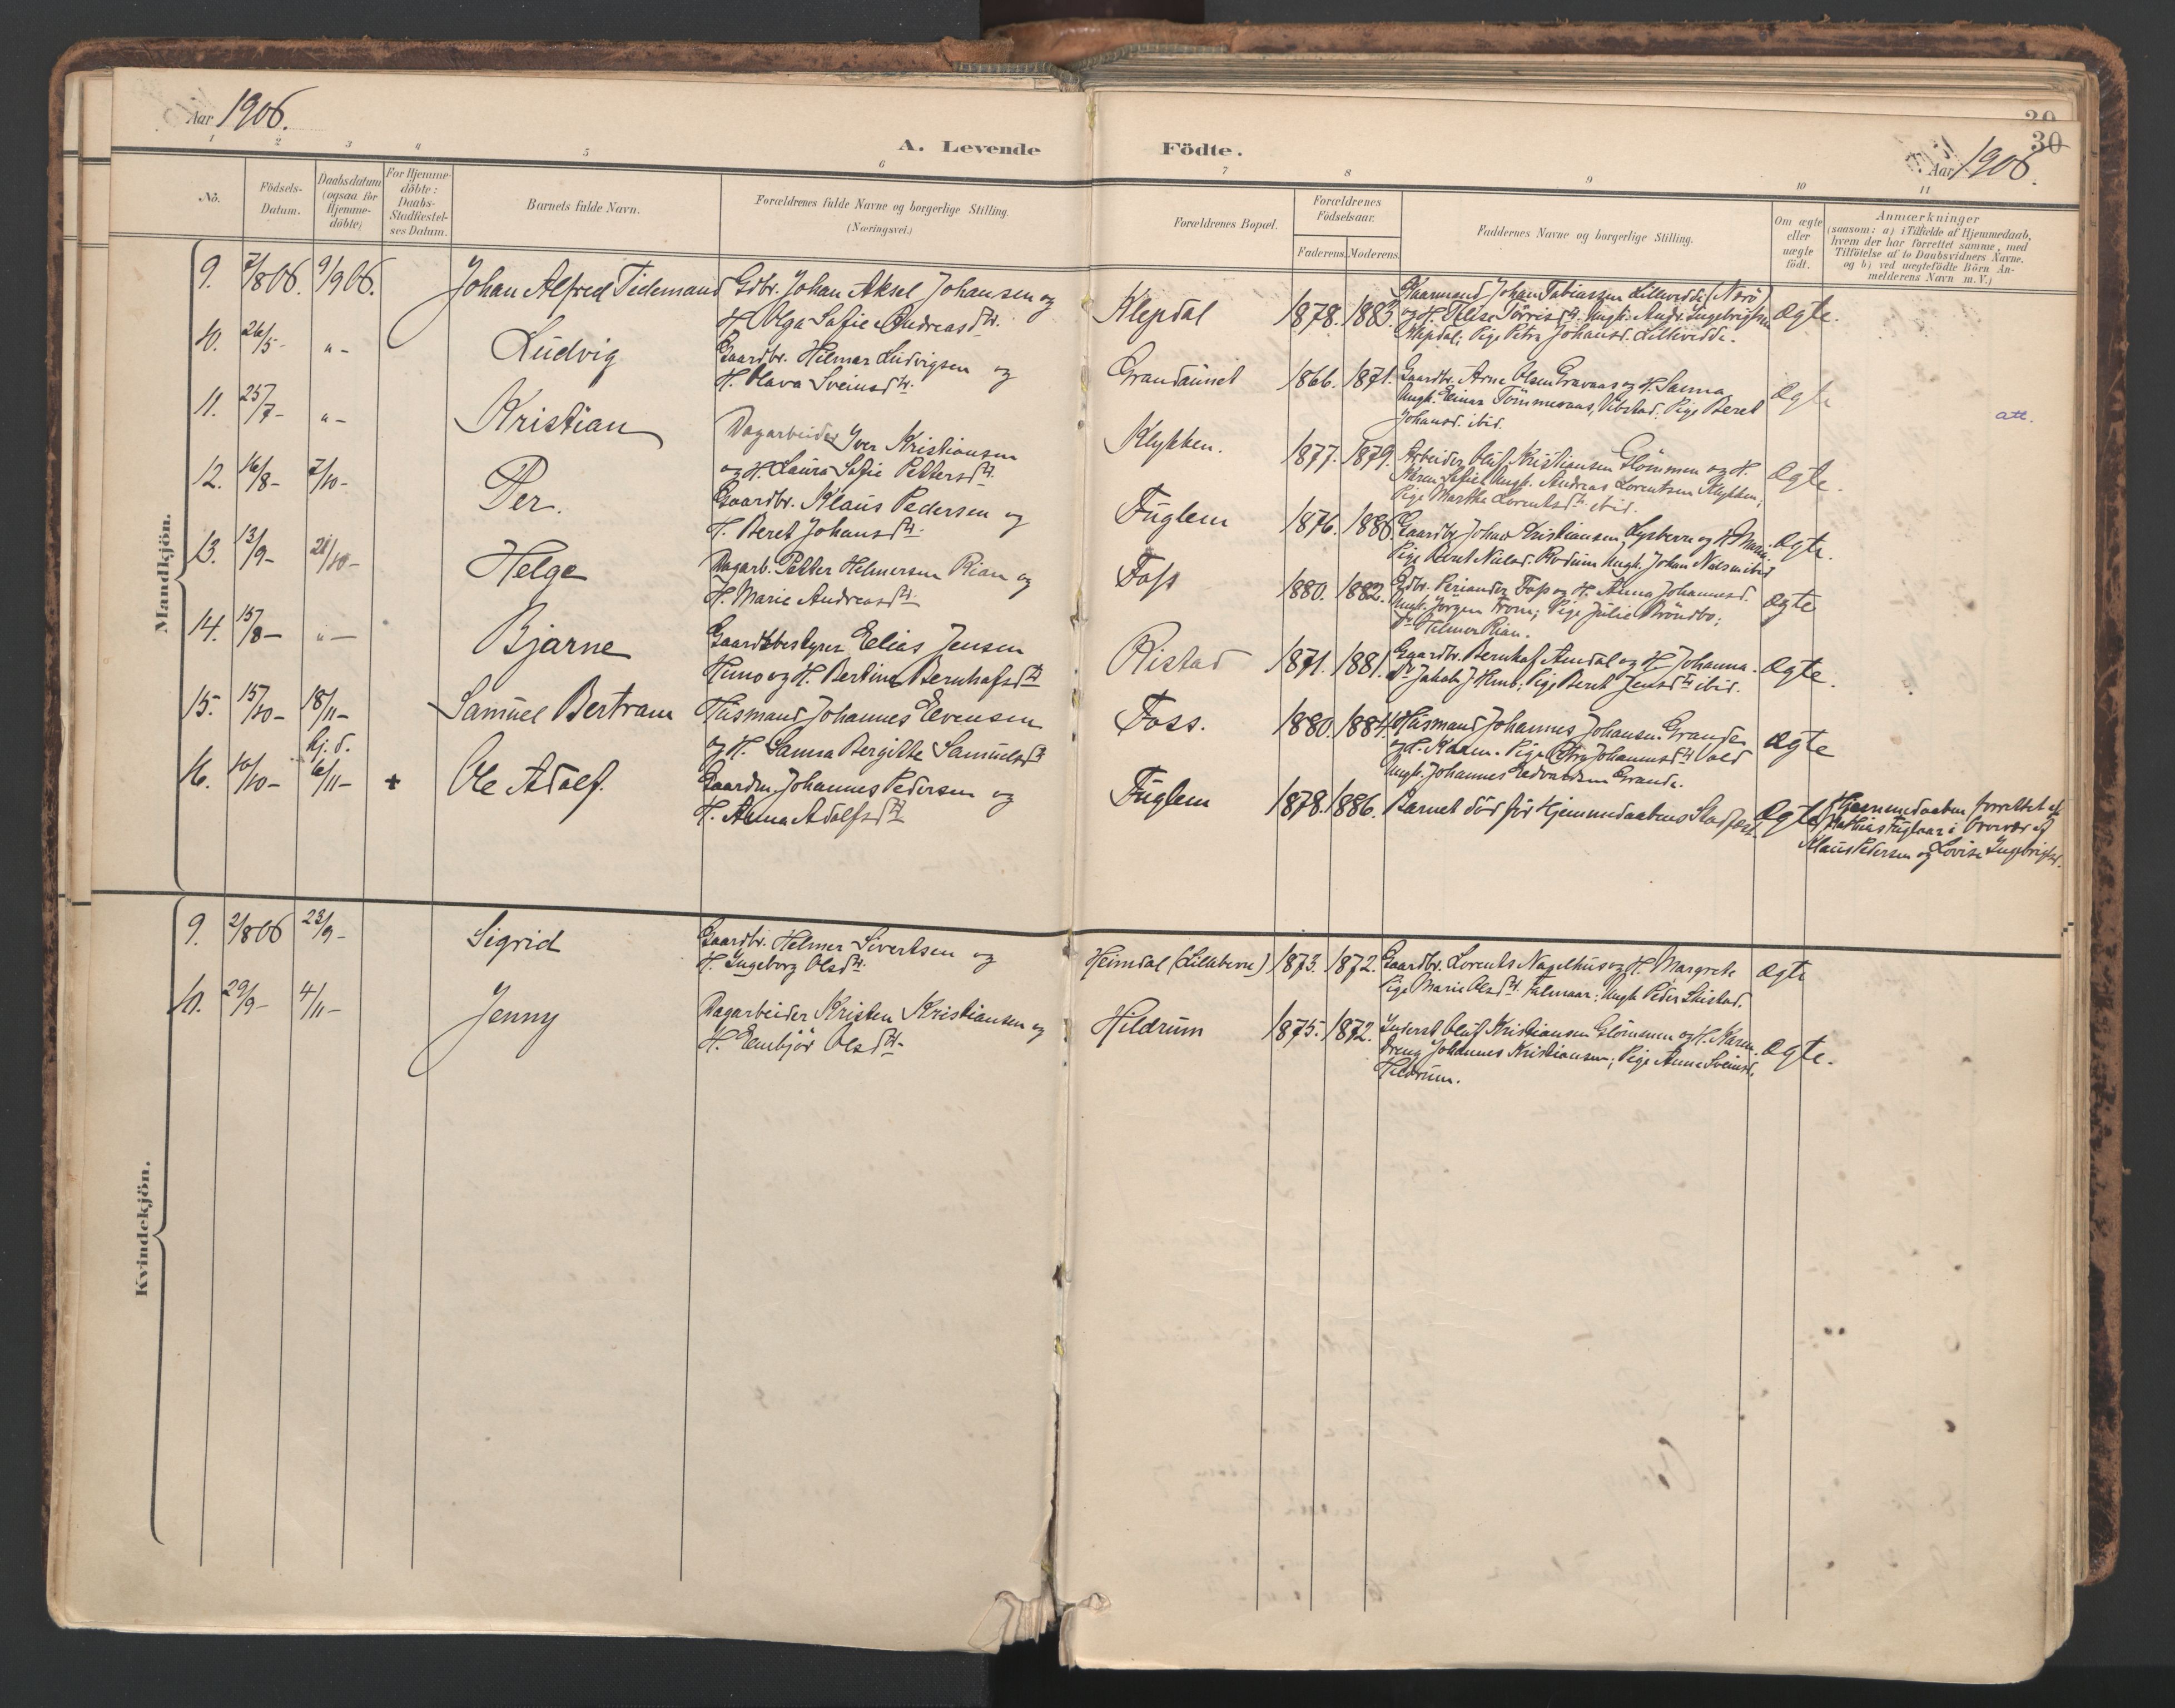 Aar 1906.
A. Levende Födte.
30
30
Aar 1906.
1 2 3 4 5 6 7 8 9 10 11
No.
Födsels-
Datum.
Daabsdatum
(ogsaa for
Hjemme-
döbte)
For Hjemme-
döbte:
Daabs-
Stadfæstel-
ses Datum.
Barnets fulde Navn.
Forældrenes fulde Navne og borgerlige Stilling.
(Næringsvei.)
Forældrenes Bopæl.
Forældrenes
Födselsaar.
Faderens. Moderens.
Faddernes Navne og borgerlige Stilling.
Om ægte
eller
uægte
födt.
Anmærkninger
(saasom: a) i Tilfælde af Hjemmedaab,
hvem der har forrettet samme, med
Tilföielse af to Daabsvidners Navne.
og b) ved uægtefödte Börn An-
melderens Navn m.V.)
Mandkjön.
9. 7/8 06. 9/9 06. Johan Alfred Tidemand
Gdbr. Johan Aksel Johansen og
H. Olga Sofie Andreasdtr.
Klepdal 1878. 1883.
Johan Tobiassen Lillevidde (Nærö)
Klepdal; Pige Petra Johansd. Lillevidde.
Ægte.
10. 26/5- "- Ludvig
Gaardbr. Hilmar Ludvigsen og
H. Olava Sveinsdtr.
Grandaunet 1866. 1871.
Gaardbr. Arne Olsen Gravaas og H. Sanna
Ungk. Einar Tömmeraas, Vibstad. Pige Beret
Johansd. ibid.
Ægte
11. 25/7- "- Kristian
Dagarbeider Iver Kristiansen
og H. Laura Sofie Pettersdtr.
Klykken. 1877. 1879.
Arbeider Oluf Kristiansen Glömmen og H.
Karen Sofie. Ungk. Andreas Lorentsen Klykken;
Pige Marthe Lorentsdtr. ibid.
Ægte.
att.
12. 16/8- 7/10- Per.
Gaardbr. Klaus Pedersen og
H. Beret Johansdtr.
Fuglem 1876. 1886.
Gaardbr. Johan Kristiansen Lysberre og H. Maria.
Pige Beret Nielsd. Rodum Ungk. Johan Nielsen ibid
Ægte.
13. 13/9- 21/10- Helge
Dagarb. Petter Helmersen Rian og
H. Marie Andreasdtr.
Foss 1880. 1882.
Gdbr. Periander Foss og H. Anna Johannesd.
Ungk. Jörgen From; Pige Julie Bröndbo;
Do Helmer Rian.
Ægte
14. 15/8- "- Bjarne
Gaardsbestyrer Elias Jensen
Humo og H. Bertine Bernhofsdtr
Ristad 1871. 1881.
Gaardbr. Bernhof Amdal og H. Johanna.
Pige Beret Jensdtr ibid.
Ægte.
15. 15/10- 18/11- Samuel Bertram
Husmand Johannes Evensen
og H. Sanna Bergitte Samuelsdtr
Foss. 1880. 1884.
Husmand Johannes Johansen Grande
og H. Karen. Pige Johannesdtr Vold
Ungk. Johannes Edvardsen Grande.
Ægte
16. 10/10- hj. d. 6/11- + Ole Adolf.
Gaardm. Johannes Pedersen og
H. Anna Adolfsdtr
Fuglem 1878. 1886.
Barnet död för Hjemmedaabens Stadfæst.
Ægte
Hjemmedaaben forrettet af
Mathias Fuglaar i Overvær af
Klaus Pedersen og Lovise Ingebrigtsd.
Kvindekjön.
9. 2/8 06 23/9- Sigrid
Gaardbr. Helmer Sivertsen og
H. Ingeborg Olsdtr.
Heimdal (Lilleberre) 1873. 1872.
Gaardbr. Lorents Nagelhus og H. Margrete
Pige Marie Olsdtr. Falmaar; Ungk Peder Skistad.
Ægte
10. 29/9- 4/11- Jenny
Dagarbeider Kristen Kristiansen og
H. Embjör Olsdtr.
Hildrum 1875. 1872.
Inderst Oluf Kristiansen Glömmen og H. Karen.
Dreng Johannes Kristiansen; Pige Anne Sveinsd.
Hildrum.
Ægte.